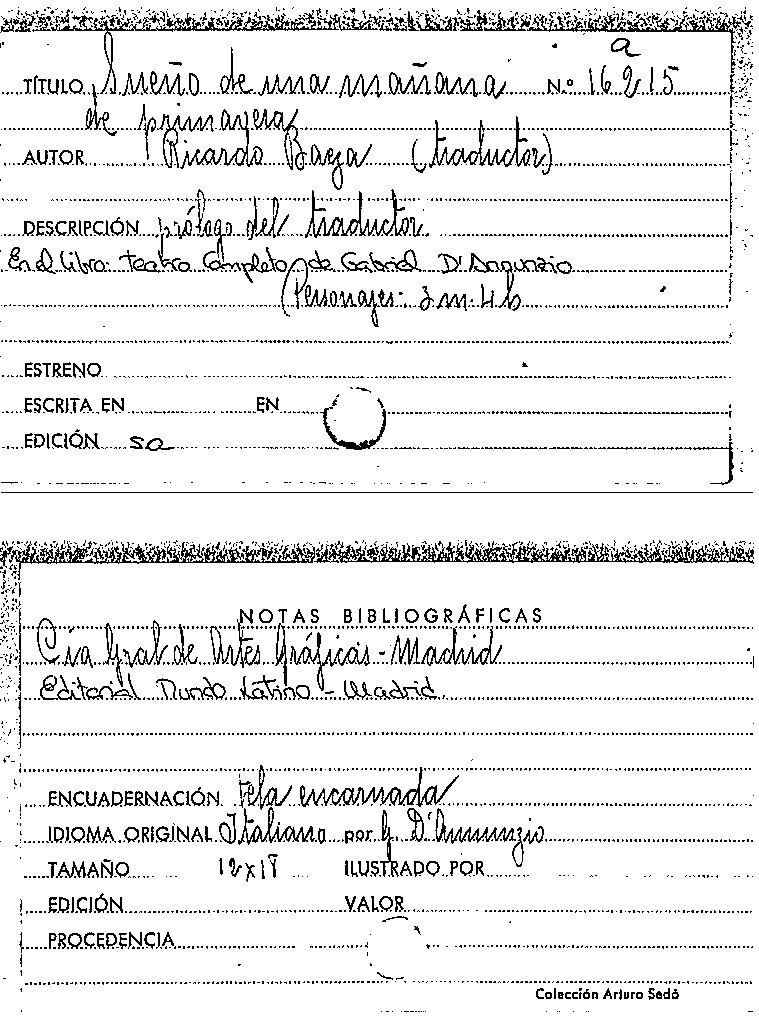 a
TÍTULO Sueño de una mañana N.º 16215
de primavera
AUTOR Ricardo Baeza (traductor)
DESCRIPCIÓN prólogo del traductor.
En el libro: Teatro Completo, de Gabriel D'Annunzio
(Personajes: 3 m. 4 h
ESTRENO
ESCRITA EN EN
EDICIÓN sa
NOTAS BIBLIOGRÁFICAS
Cía Gral de Artes Gráficas - Madrid
Editorial Mundo Latino - Madrid.
ENCUADERNACIÓN Tela encarnada
IDIOMA ORIGINAL Italiano por G. D'Annunzio
TAMAÑO 12x17 ILUSTRADO POR
EDICIÓN VALOR
PROCEDENCIA
Colección Arturo Sedó